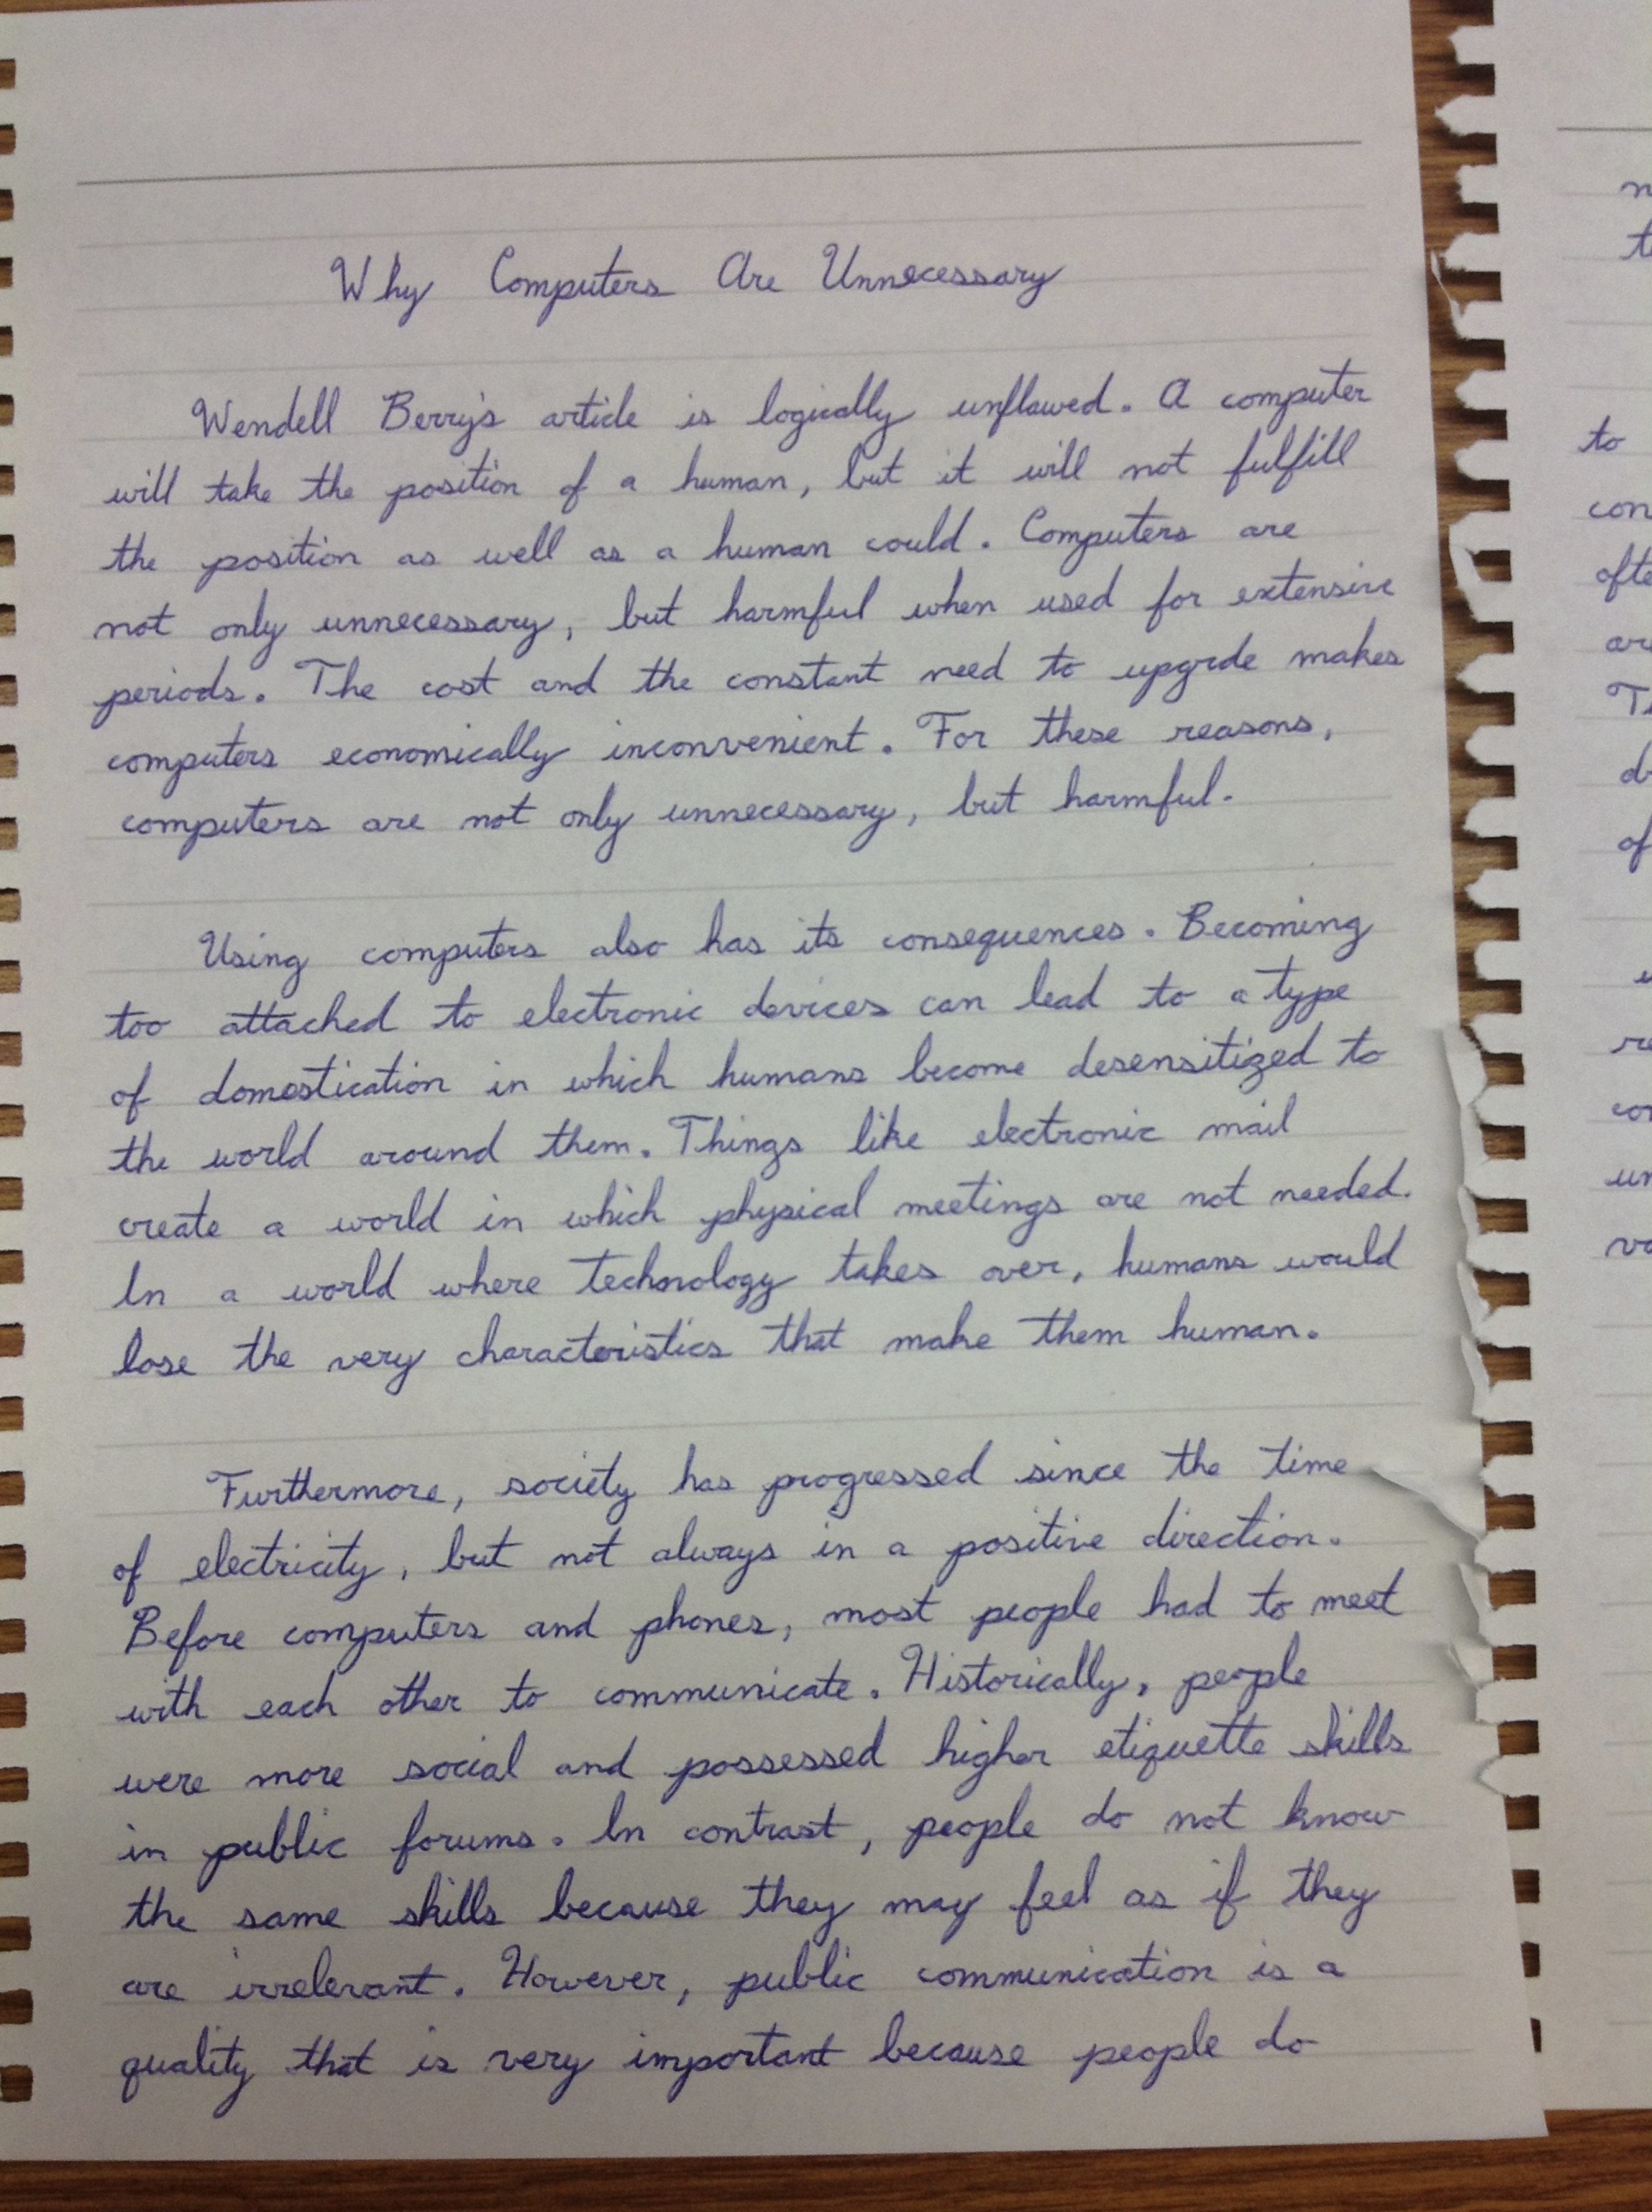 Why Computers Are Unnecessary
Wendell Berry's article is logically unflawed. A computer
will take the position of a human, but it will not fulfill
the position as well as a human could. Computers are
not only unnecessary, but harmful when used for extensive
periods. The cost and the constant need to upgrde makes
computers economically inconvenient. For these reasons,
computers are not only unnecessary, but harmful.
Using computers also has its consequences. Becoming
too attached to electronic devices can lead to a type
of domestication in which humans become desensitized to
the world around them. Things like electronic mail
create a world in which physical meetings are not needed.
In a world where technology takes over, humans would
lose the very characteristics that make them human.
Furthermore, society has progressed since the time
of electricity, but not always in a positive direction.
Before computers and phones, most people had to meet
with each other to communicate. Historically, people
were more social and possessed higher etiquette skills
in public forums. In contrast, people do not know
the same skills because they may feel as if they
are irrelevant. However, public communication is a
quality that is very important because people do
to